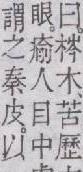 曰。梣木、苦歷
眼。瘉人目中
謂之秦皮。以